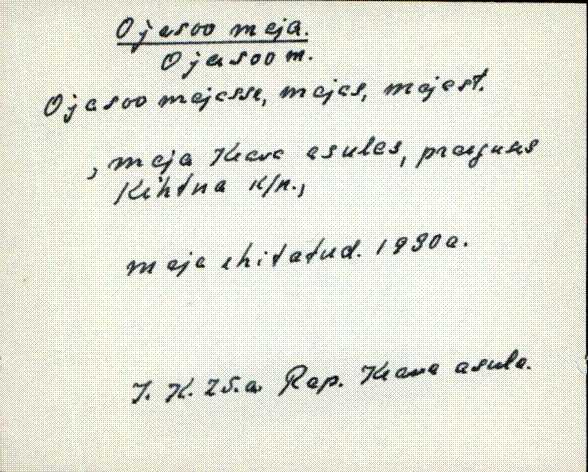 Ojasoo maja.
Ojasoo m.
Ojasoo majasse, majas, majast.
, maja Keava asulas, praeguses
Kehtna k/n.,
maja ehitatud. 1930a.
J. K. 75.a. Rap. Keava asula.